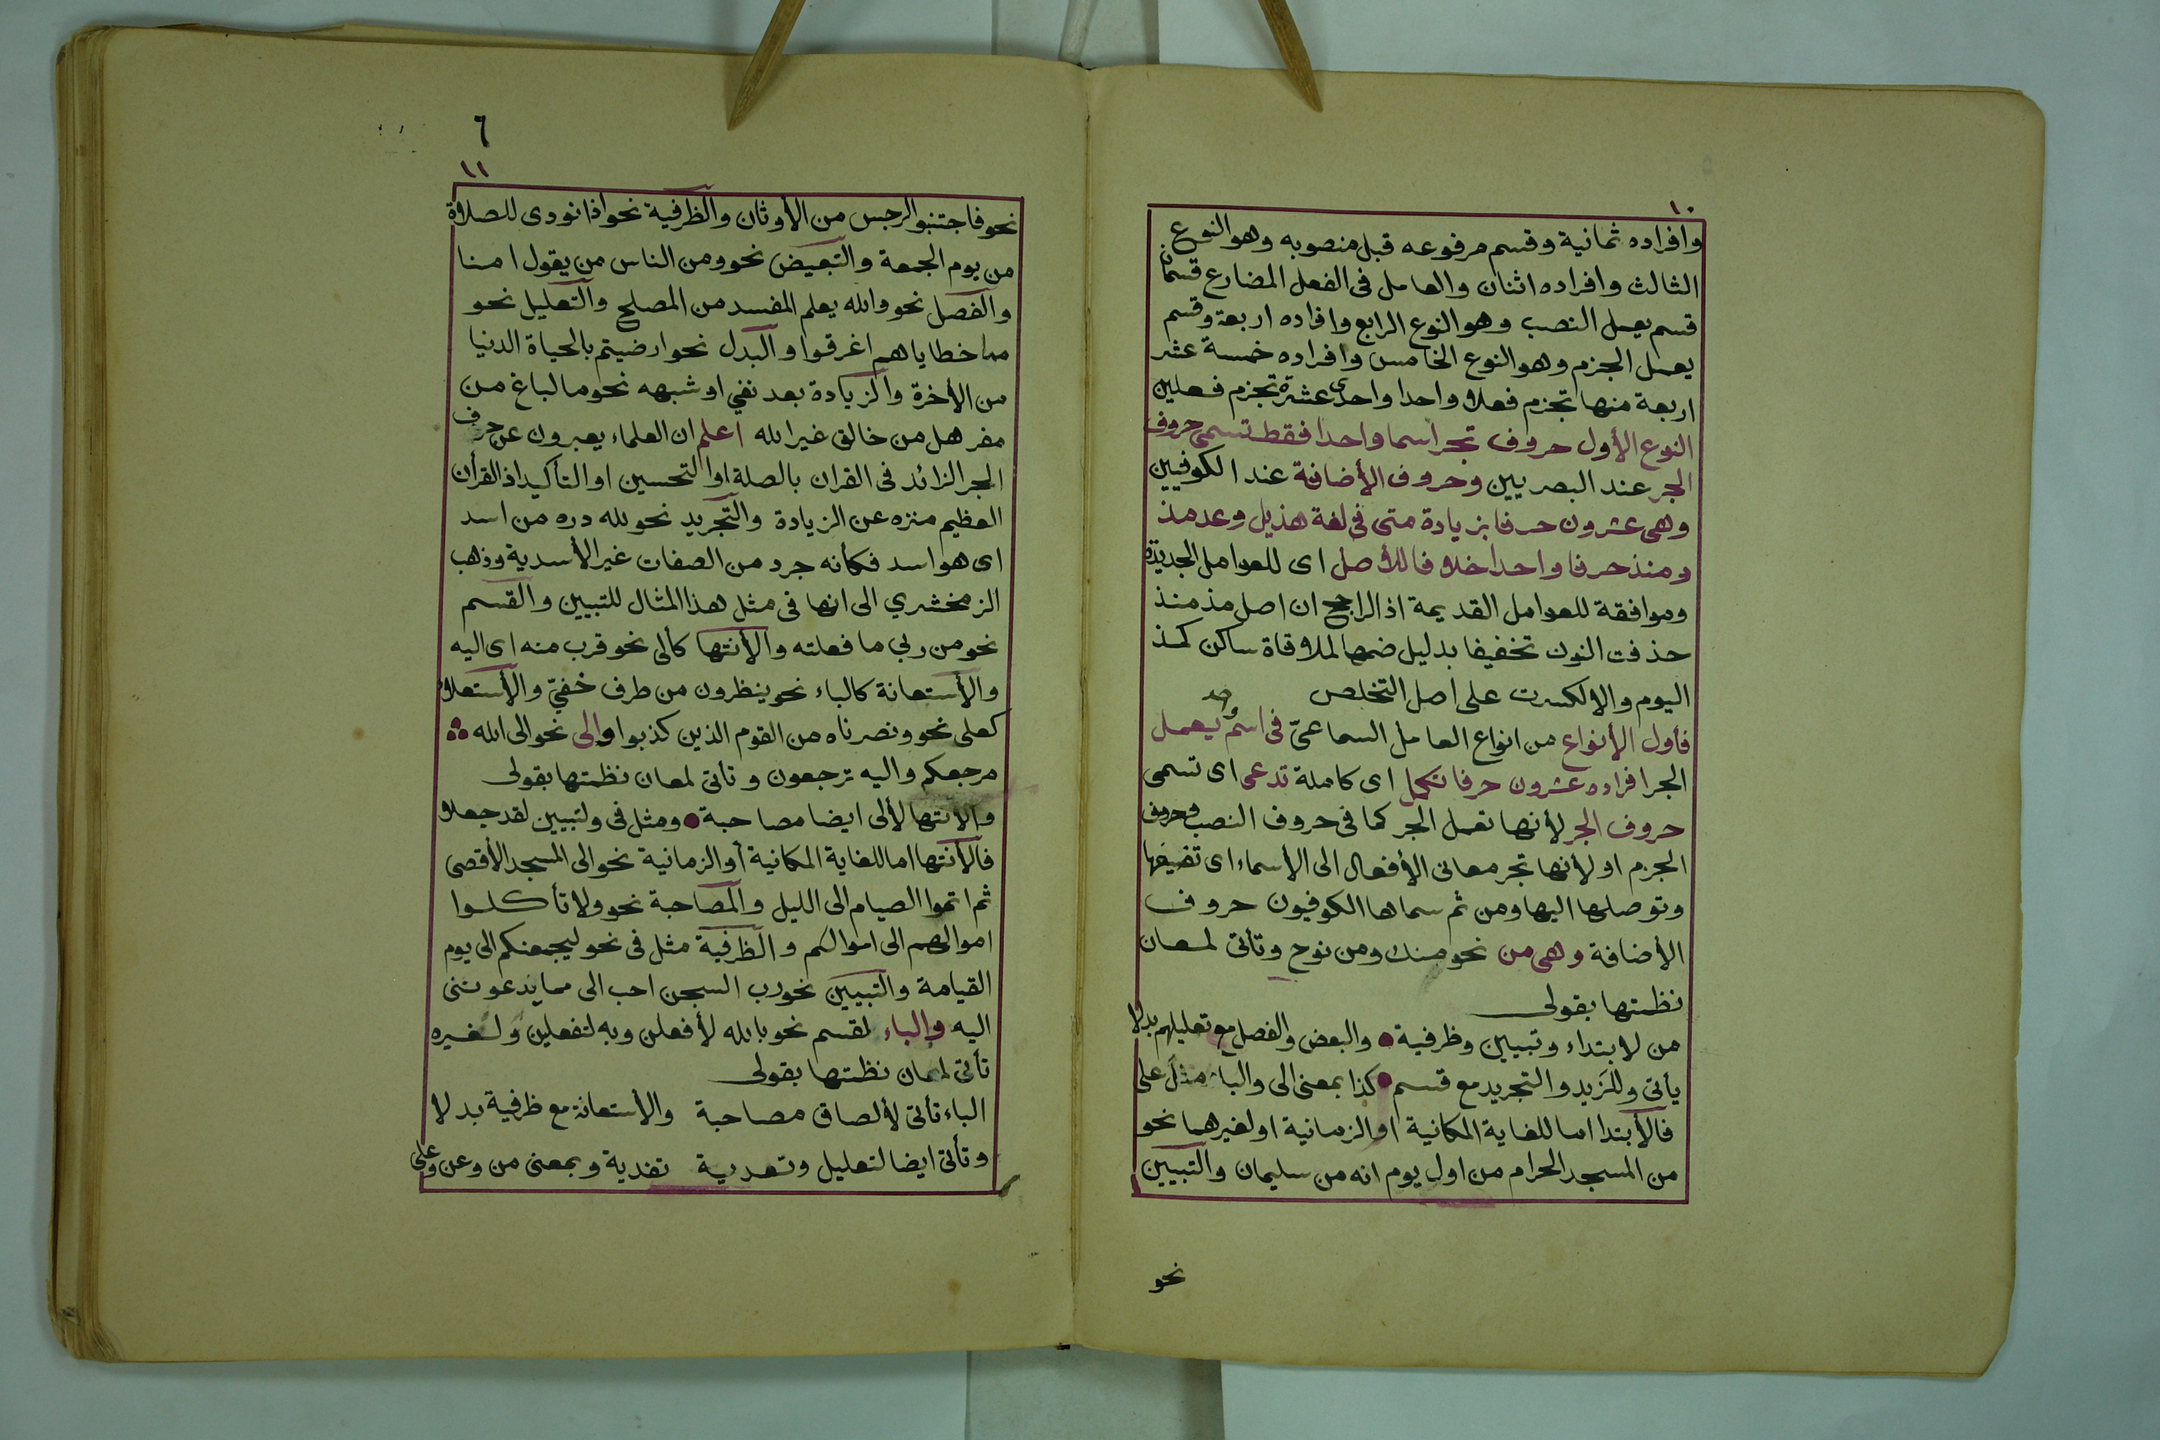 ١٠
وافراده ثمانية وقسم مرفوعه قبل منصوبه وهو النوع
الثالث وافراده اثنان والعامل فى الفعل المضارع قسمان
قسم يعمل النصب وهو النوع الرابع وافراده اربعة وقسم
يعمل الجزم وهو النوع الخامس وافراده خمسة عشر
اربعة منها تجزم فعلا واحدا واحدى عشرة تجزم فعلين
النوع الأول حروف تجر اسما واحدا فقط تسمى حروف
الجر عند البصريين وحروف الأضافة عند الكوفيين
وهى عشرون حرفا بزيادة متى فى لغة هذيل وعد مذ
ومنذ حرفا واحدا خلافا للأصل اى للعوامل الجديدة
وموافقة للعوامل القديمة اذ الراجح ان اصل مذ منذ
حذفت النون تخفيفا بدليل ضمها لملاقاة ساكن كمذ
اليوم والا لكسرت على اصل التخلص
فأول الأنواع من انواع العامل السماعىّ فى اسم يعمل
الجر افراده عشرون حرفا تكمل اى كاملة تدعى اى تسمى
حروف الجر لأنها تعمل الجر كما فى حروف النصب وحروف
الجزم او لأنها تجر معانى الأفعال الى الأسماء اى تضيفها
وتوصلها اليها ومن ثم سماها الكوفيون حروف
الأضافة وهى من نحو منك ومن نوح وتأتى لمعان
نظمتها بقولى
من لابتداء وتبيين وظرفية • والبعض والفصل مع تعليلهم بدلا
يأتى وللمَزيد والتجريد مع قسم • كذا بمعنى الى والباء مثل على
فالأبتدا اما للغاية المكانية او الزمانية او لغيرهما نحو
من المسجد الحرام من اول يوم انه من سليمان والتبيين
نحو
٦
١١
نحو فاجتنبو الرجس من الأوثان والظرفية نحو اذا نودى للصلاة
من يوم الجمعة والتبعيض نحو ومن الناس من يقول امنا
والفصل نحو والله يعلم المفسد من المصلح والتعليل نحو
مما خطاياهم اغرقوا والبدل نحو ارضيتم بالحياة الدنيا
من الأخرة والزيادة بعد نفي او شبهه نحو ما لباغ من
مفر هل من خالق غير الله اعلم ان العلماء يعبرون عن حرف
الجر الزائد فى القران بالصلة او التحسين او التأكيد اذ القرأن
العظيم منزه عن الزيادة والتجريد نحو لله دره من اسد
اى هو اسد فكأنه جرد من الصفات غير الأسدية وذهب
الزمخشري الى انها فى مثل هذا المثال للتبيين والقسم
نحو من ربي ما فعلته والأنتها كألى نحو قرب منه اى اليه
والأستعانة كالباء نحو ينظرون من طرف خفيّ والأستعلاء
كعلى نحو ونصرناه من القوم الذين كذبوا والى نحو الى الله
مرجعكم واليه ترجعون وتأتى لمعان نظمتها بقولى
والأنتها لألى ايضا مصاحبة • ومثل فى ولتبيين لقد جعلا
فالأنتها اما للغاية المكانية أو الزمانية نحو الى المسجد الأقصى
ثم اتموا الصيام الى الليل والمصاحبة نحو ولا تأكلوا
اموالهم الى اموالكم والظرفية مثل فى نحو ليجمعنكم الى يوم
القيامة والتبيين نحو رب السجن احب الى مما يدعوننى
اليه والباء لقسم نحو بالله لأفعلن وبه لتفعلين ولغيره
تأتى لمعان نظمتها بقولى
الباء تأتى لألصاق مصاحبة والأستعانة مع ظرفية بدلا
وتأتى ايضا لتعليل وتعدية تفدية وبمعنى من وعن وعلى